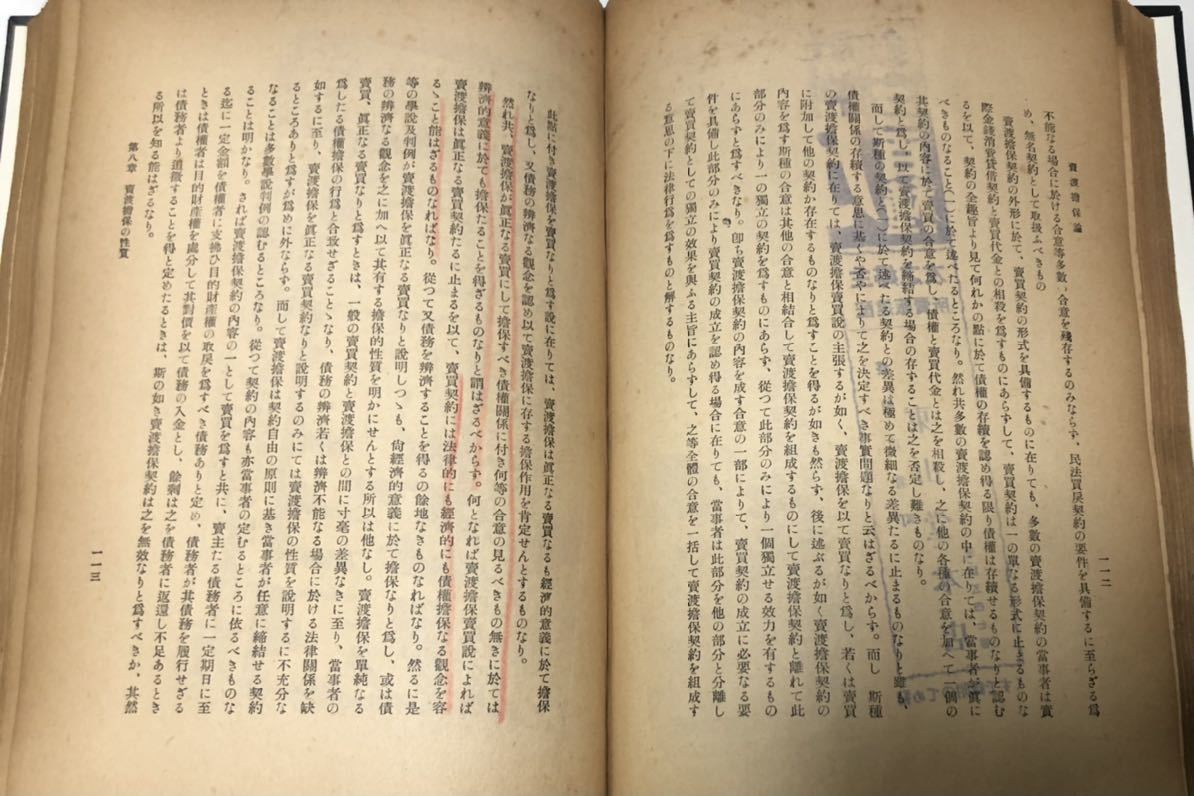 賣渡擔保論
一一二
不能なる場合に於ける合意等多數の合意を殘存するのみならず、民法買戾契約の要件を具備するに至らざる爲
め、無名契約として取扱ふべきもの
賣渡擔保契約の外形に於て、賣買契約の形式を具備するものに在りても、多數の賣渡擔保契約の當事者は實
際金錢消費貸借契約と賣買代金との相殺を爲すものにあらずして、賣買契約は一の單なる形式に止まるものな
るを以て、契約の全趣旨より見て何れかの點に於て債權の存續を認め得る限り債權は存續せるものなりと認む
べきものなること(一)に於て述べたるところなり。然れ共多數の賣渡擔保契約の中に在りては、當事者が眞に
其契約の內容に於て賣買の合意を爲し、債權と賣買代金とは之を相殺し、之に他の各種の合意を加へて一個の
契約と爲し、以て賣渡擔保契約を締結する場合の存することは之を否定し難きものなり。
而して斯種の契約と(一)に於て述べたる契約との差異は極めて微細なる差異たるに止まるものなりと雖も、
債權關係の存續する意思に基くや否やによりて之を決定すべき事實問題なりと云はざるべからず。而し 斯種
の賣渡擔保契約に在りては、賣渡擔保賣買說の主張するが如く、賣渡擔保を以て賣買なりと爲し、若くは賣買
に附加して他の契約か存在するものなりと爲すことを得るが如きも然らず、後に述ぶるが如く賣渡擔保契約と離れて此
內容を爲す斯種の合意は其他の合意と相結合して賣渡擔保契約を組成するものにして賣渡擔保契約の
部分のみにより一の獨立の契約を爲すものにあらず、從つて此部分のみにより一個獨立せる效力を有するもの
にあらずと爲すべきなり。卽ち賣渡擔保契約の內容を成す合意の一部によりて、賣買契約の成立に必要なる要
件を具備し此部分のみにより賣買契約の成立を認め得る場合に在りても、當事者は此部分を他の部分と分離し
て賣買契約としての獨立の效果を與ふる主旨にあらずして、之等全體の合意を一括して賣渡擔保契約を組成す
る意思の下に法律行爲を爲すものと解するものなり。
此點に付き賣渡擔保を賣買なりと爲す說に在りては、賣渡擔保は眞正なる賣買なるも經濟的意義に於て擔保
なりと爲し、又債務の辨濟なる觀念を認め以て賣渡擔保に存する擔保作用を肯定せんとするものなり。
然れ共、賣渡擔保が眞正なる賣買にして擔保すべき債權關係に付き何等の合意の見るべきもの無きに於ては
經濟的意義に於ても擔保たることを得ざるものなりと謂はざるべからず。何となれば賣渡擔保賣買說によれば
賣渡擔保は眞正なる賣買契約たるに止まるを以て、賣買契約には法律的にも經濟的にも債權擔保なる觀念を容
るゝこと能はざるものなればなり。從つて又債務を辨濟することを得るの餘地なきものなればなり。然るに是
等の學說及判例が賣渡擔保を眞正なる賣買なりと說明しつゝも、尙經濟的意義に於て擔保なりと爲し、或は債
務の辨濟なる觀念を之に加へ以て其有する擔保的性質を明かにせんとする所以は他なし。賣渡擔保を單純なる
賣買、眞正なる賣買なりと爲すときは、一般の賣買契約と賣渡擔保との間に寸毫の差異なきに至り、當事者の
爲したる債權擔保の行爲と合致せざることゝなり、債務の辨濟若くは辨濟不能なる場合に於ける法律關係を缺
如するに至り、賣渡擔保を眞正なる賣買契約なりと說明するのみにては賣渡擔保の性質を說明するに不充分な
るところありと爲すが爲めに外ならず。而して賣渡擔保は契約自由の原則に基き當事者が任意に締結せる契約
なることは多數學說判例の認むるところなり。從つて契約の內容も亦當事者の定むるところに依るべきものな
ることは明かなり。されば賣渡擔保契約の內容の一として賣買を爲すと共に、賣主たる債務者に一定期日に至
る迄に一定金額を債權者に支拂ひ目的財產權の取戾を爲すべき債務ありと定め、債務者が其債務を履行せざる
ときは債權者は目的財產權を處分して其對價を以て債務の入金とし、餘剩は之を債務者に返還し不足あるとき
は債務者より追徵することを得と定めたるときは、斯の如き賣渡擔保契約は之を無效なりと爲すべきか、其然
る所以を知る能はざるなり。
第八章 賣渡擔保の性質
一一三